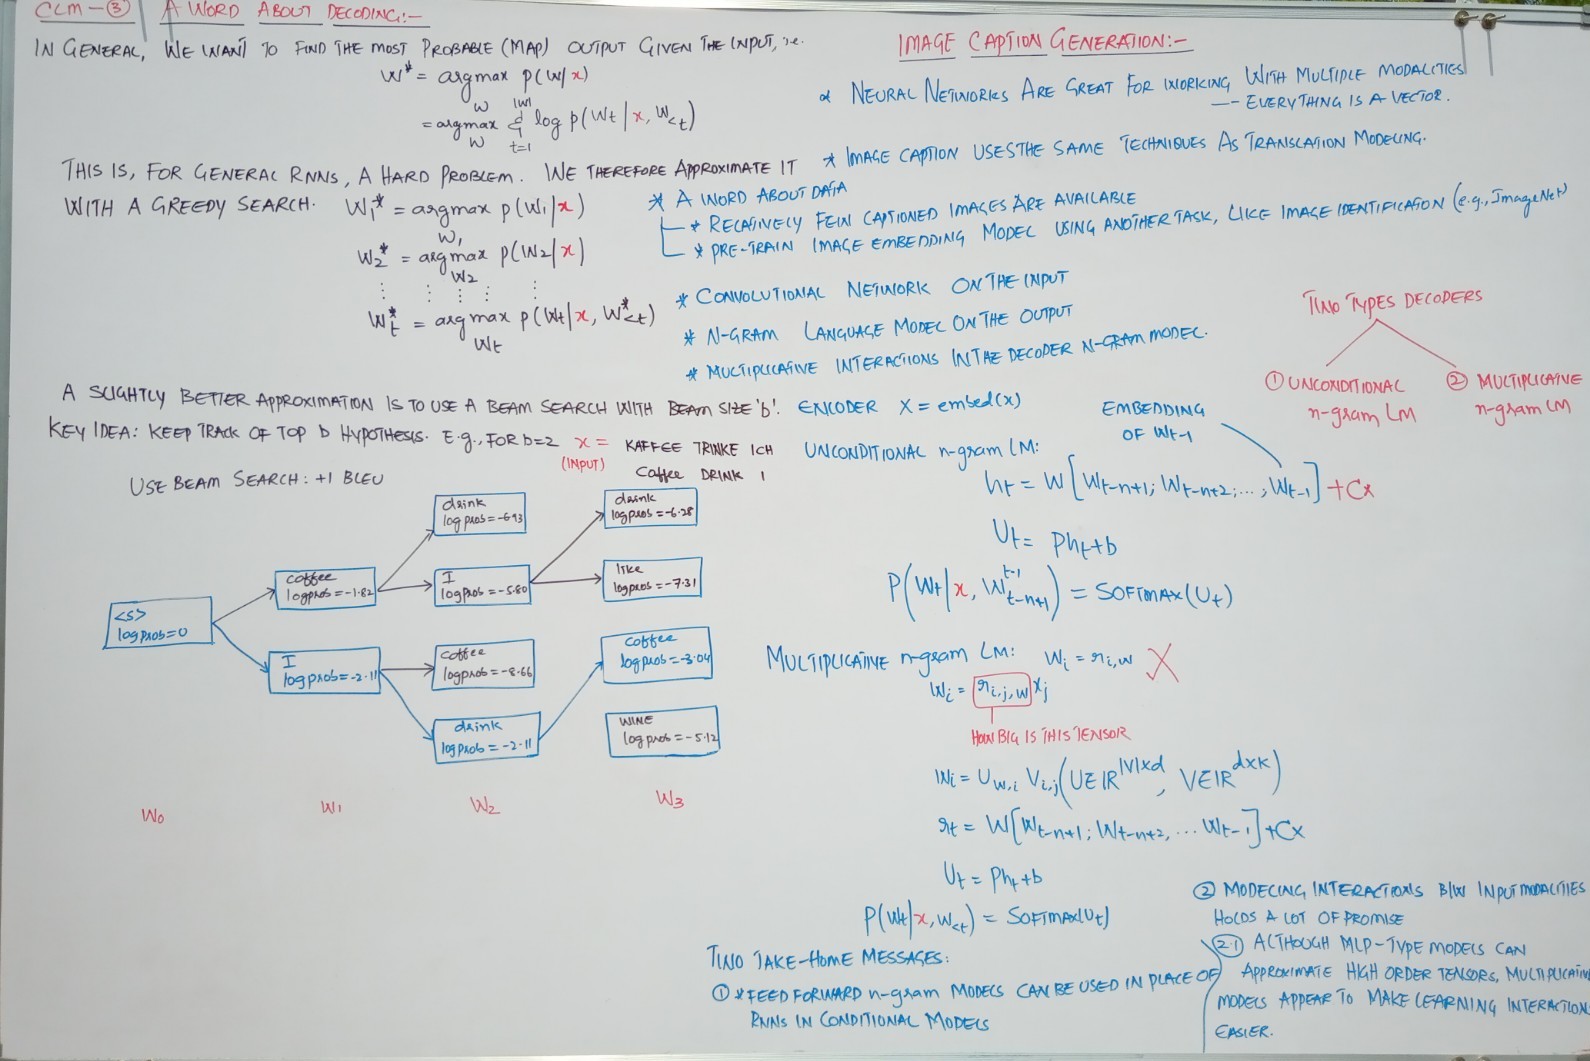 CLM-③ A WORD ABOUT DECODING:-
IN GENERAL, WE WANT TO FIND THE MOST PROBABLE (MAP) OUTPUT GIVEN THE INPUT, i.e.
W* = argmax p(w|x)
w
= argmax Σ log p(wt|x, w<t)
W t=1 |w|
THIS IS, FOR GENERAL RNNS, A HARD PROBLEM. WE THEREFORE APPROXIMATE IT
WITH A GREEDY SEARCH. W1* = argmax p(w1|x)
w1
W2* = argmax p(w2|x)
w2
⋮ ⋮ ⋮ ⋮ ⋮
Wt* = argmax p(wt|x, W*<t)
wt
A SLIGHTLY BETTER APPROXIMATION IS TO USE A BEAM SEARCH WITH BEAM SIZE 'b'.
KEY IDEA: KEEP TRACK OF TOP b HYPOTHESIS. E.g., FOR b=2 x = KAFFEE TRINKE ICH
(INPUT) Coffee DRINK I
USE BEAM SEARCH: +1 BLEU
<s>
logprob=0
coffee
logprob=-1.82
I
logprob=-2.11
drink
logprob=-6.93
I
logprob=-5.80
coffee
logprob=-8.66
drink
logprob=-2.11
drink
logprob=-6.28
like
logprob=-7.31
coffee
logprob=-3.04
WINE
logprob=-5.12
W0 W1 W2 W3
IMAGE CAPTION GENERATION:-
* NEURAL NETWORKS ARE GREAT FOR WORKING WITH MULTIPLE MODALITIES
-- EVERYTHING IS A VECTOR.
* IMAGE CAPTION USES THE SAME TECHNIQUES AS TRANSLATION MODELING.
* A WORD ABOUT DATA
* RELATIVELY FEW CAPTIONED IMAGES ARE AVAILABLE
* PRE-TRAIN IMAGE EMBEDDING MODEL USING ANOTHER TASK, LIKE IMAGE IDENTIFICATION (e.g., ImageNet)
* CONVOLUTIONAL NETWORK ON THE INPUT
* N-GRAM LANGUAGE MODEL ON THE OUTPUT
* MULTIPLICATIVE INTERACTIONS IN THE DECODER N-GRAM MODEL.
TWO TYPES DECODERS
① UNCONDITIONAL
n-gram LM
② MULTIPLICATIVE
n-gram LM
ENCODER X = embed(x)
EMBEDDING
OF Wt-1
UNCONDITIONAL n-gram LM:
ht = W[Wt-n+1; Wt-n+2; ... ; Wt-1] + Cx
Ut = Pht+b
P(Wt|x, W t-1 t-n+1) = SOFTMAX(Ut)
MULTIPLICATIVE n-gram LM: Wi = ri,w X
Wi = ri,j,w xj
HOW BIG IS THIS TENSOR
Wi = Uw,i Vi,j (U∈IR|V|xd, V∈IRdxk)
rt = W[Wt-n+1; Wt-n+2, ... Wt-1] + Cx
Ut = Pht+b
P(Wt|x, W<t) = SOFTMAX(Ut)
TWO TAKE-HOME MESSAGES:
① * FEED FORWARD n-gram MODELS CAN BE USED IN PLACE OF
RNNS IN CONDITIONAL MODELS
② MODELING INTERACTIONS B/W INPUT MODALITIES
HOLDS A LOT OF PROMISE
2.1) ALTHOUGH MLP-TYPE MODELS CAN
APPROXIMATE HIGH ORDER TENSORS, MULTIPLICATIVE
MODELS APPEAR TO MAKE LEARNING INTERACTIONS
EASIER.